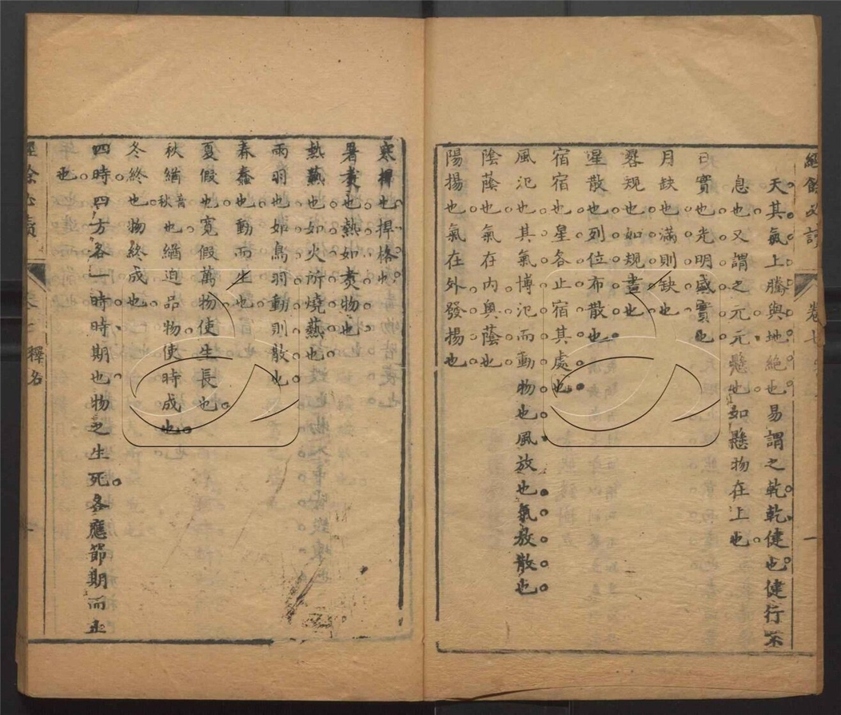 經餘必讀 卷七
天其氣上騰與地絕也易謂之乾乾健也健行不
息也又謂之元元懸也如懸物在上也
日實也光明盛實也
月缺也滿則缺也
晷規也如規畫也
星散也列位布散也
宿宿也星各止宿其處也
風氾也其氣博氾而動物也風放也氣放散也
陰蔭也氣在內奧蔭也
陽揚也氣在外發揚也
寒捍也捍格也
暑煑也熱如煑物也
熱爇也如火所燒爇也
雨羽也如鳥羽動則散也
春蠢也動而生也
夏假也寬假萬物使生長也
秋緧音秋也緧迫品物使時成也
冬終也物終成也
四時四方各一時時期也物之生死各應節期而止
也
經餘必讀 卷七 釋名 一